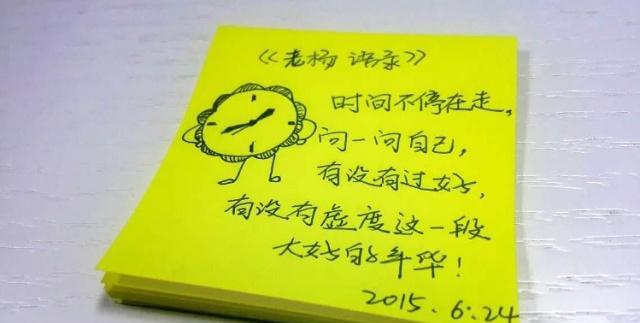 《老杨语录》
时间不停在走,
问一问自己,
有没有过好,
有没有虚度这一段
大好的年华!
2015.6.24